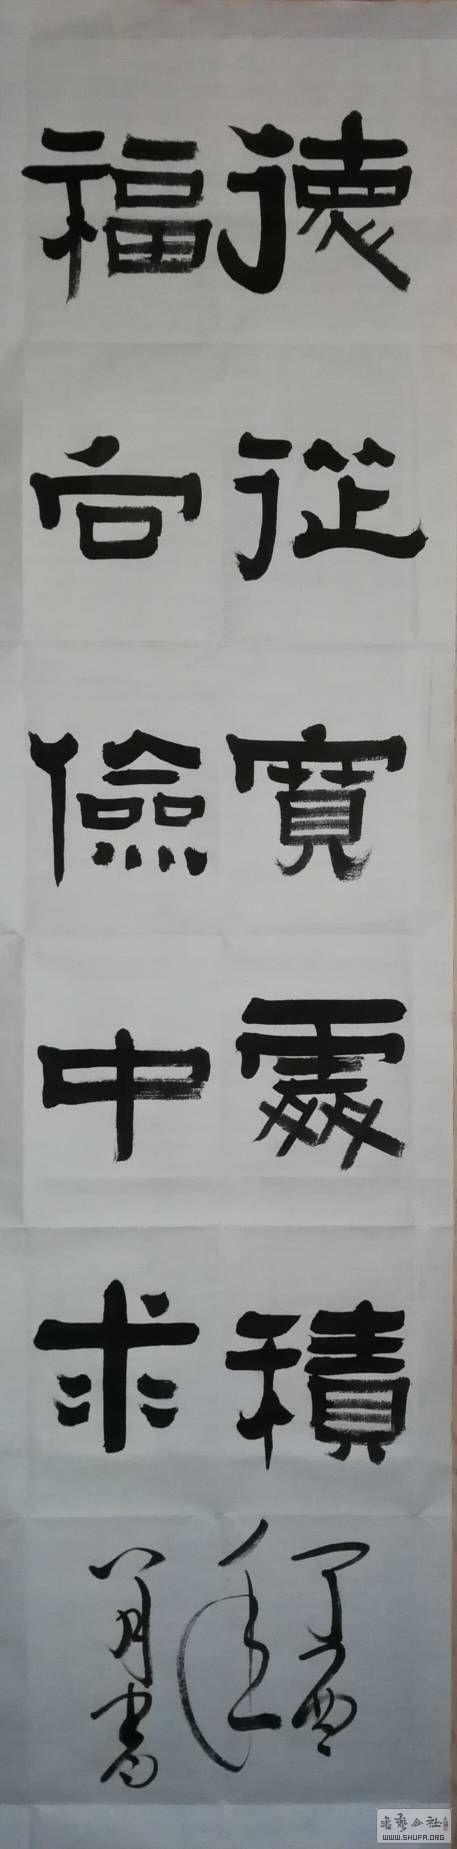 德從寬處積
福向儉中求
丁酉
年
八月書
书艺公社
WWW.SHUFA.ORG